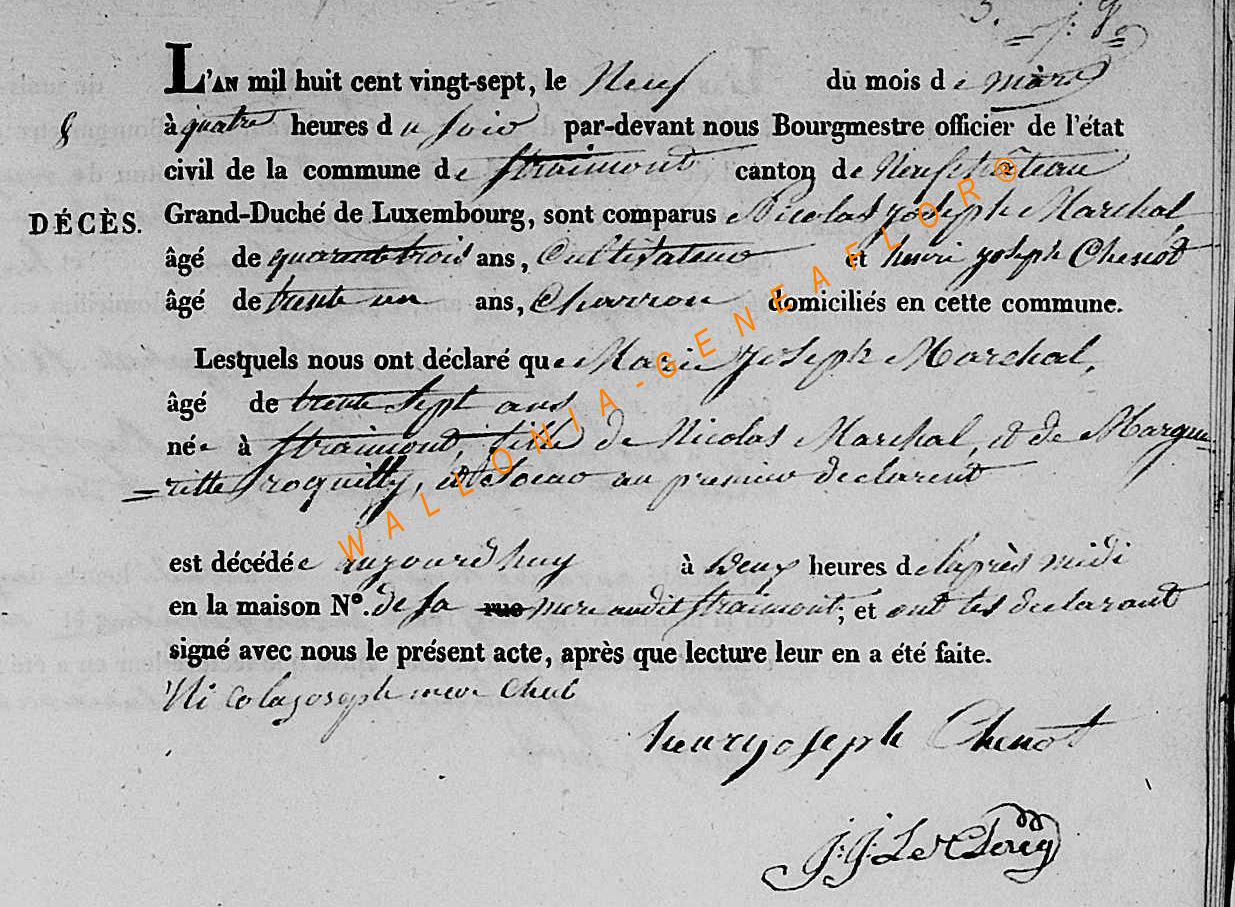 L'AN mil huit cent vingt-sept, le Neuf du mois de mars
8 à quatre heures du soir par-devant nous Bourgmestre officier de l'état
civil de la commune de Straimont canton de Neufchâteau
DÉCÈS. Grand-Duché de Luxembourg, sont comparus Nicolas Joseph Marchal,
âgé de quarante trois ans, Cultivateur et henri joseph Chenot
âgé de trente un ans, Charron domiciliés en cette commune.
Lesquels nous ont déclaré que Marie Joseph Marchal,
âgé de trente sept ans
née à Straimont, fille de Nicolas Marchal, et de Margue
=ritte roquilly, et Soeur au premier declarent
est décédée aujourd'huy à deux heures de l'après midi
en la maison N°. de sa rue mere audit Straimont; et ont les declarant
signé avec nous le présent acte, après que lecture leur en a été faite.
Nicolas joseph mar Chal
henry joseph Chenot
J: J: Le Clercq
WALLONIA-GENEAFLOR®